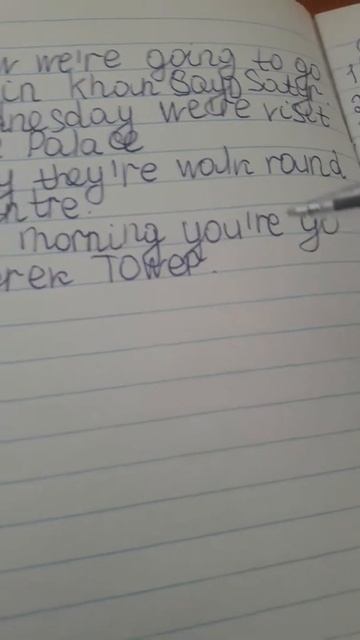 we're going to go
in khan Sayd Satyr
we're visit
Palace
they're walk round
ntre.
morning you're go
erek Tower.